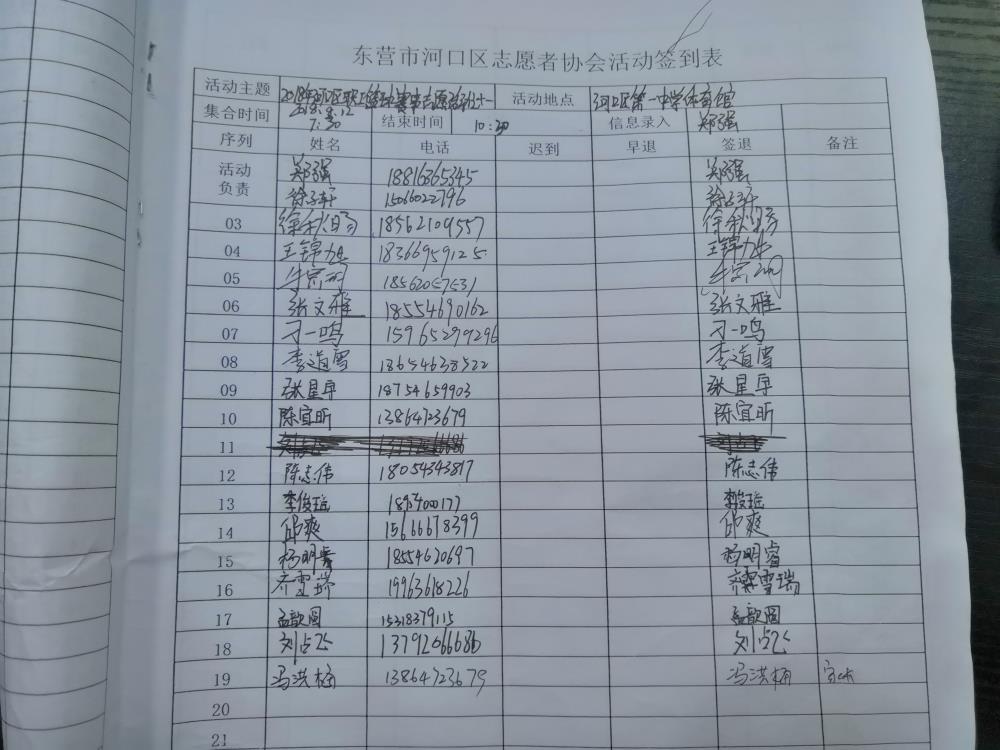 东营市河口区志愿者协会活动签到表
活动主题 2018年河口区职工篮球赛事志愿活动 活动地点 河口区第一中学体育馆
集合时间 7:30 结束时间 10:30 信息录入 郑强
序列 姓名 电话 迟到 早退 签退 备注
活动负责 郑强 18816365345 郑强
徐子轩 15066022796 徐子轩
03 18562109557
04 王锦旭 18366959125 王锦旭
05 18562057531
06 张文雅 18554690162 张文雅
07 刁一鸣 15965299296 刁一鸣
08 李道雪 18654638522 李道雪
09 张星宇 18754659903 张星宇
10 陈宜昕 13864723679 陈宜昕
11
12 陈志伟 18054343817 陈志伟
13 李俊瑶 李俊瑶
14 邱爽 15666678399 邱爽
15 杨明睿 18554620697 杨明睿
16 齐雪瑞 19963618226 齐雪瑞
17 孟歆圆 15318379115 孟歆圆
18 刘占飞 13792066686 刘占飞
19 冯洪楠 13864723679 冯洪楠
20
21